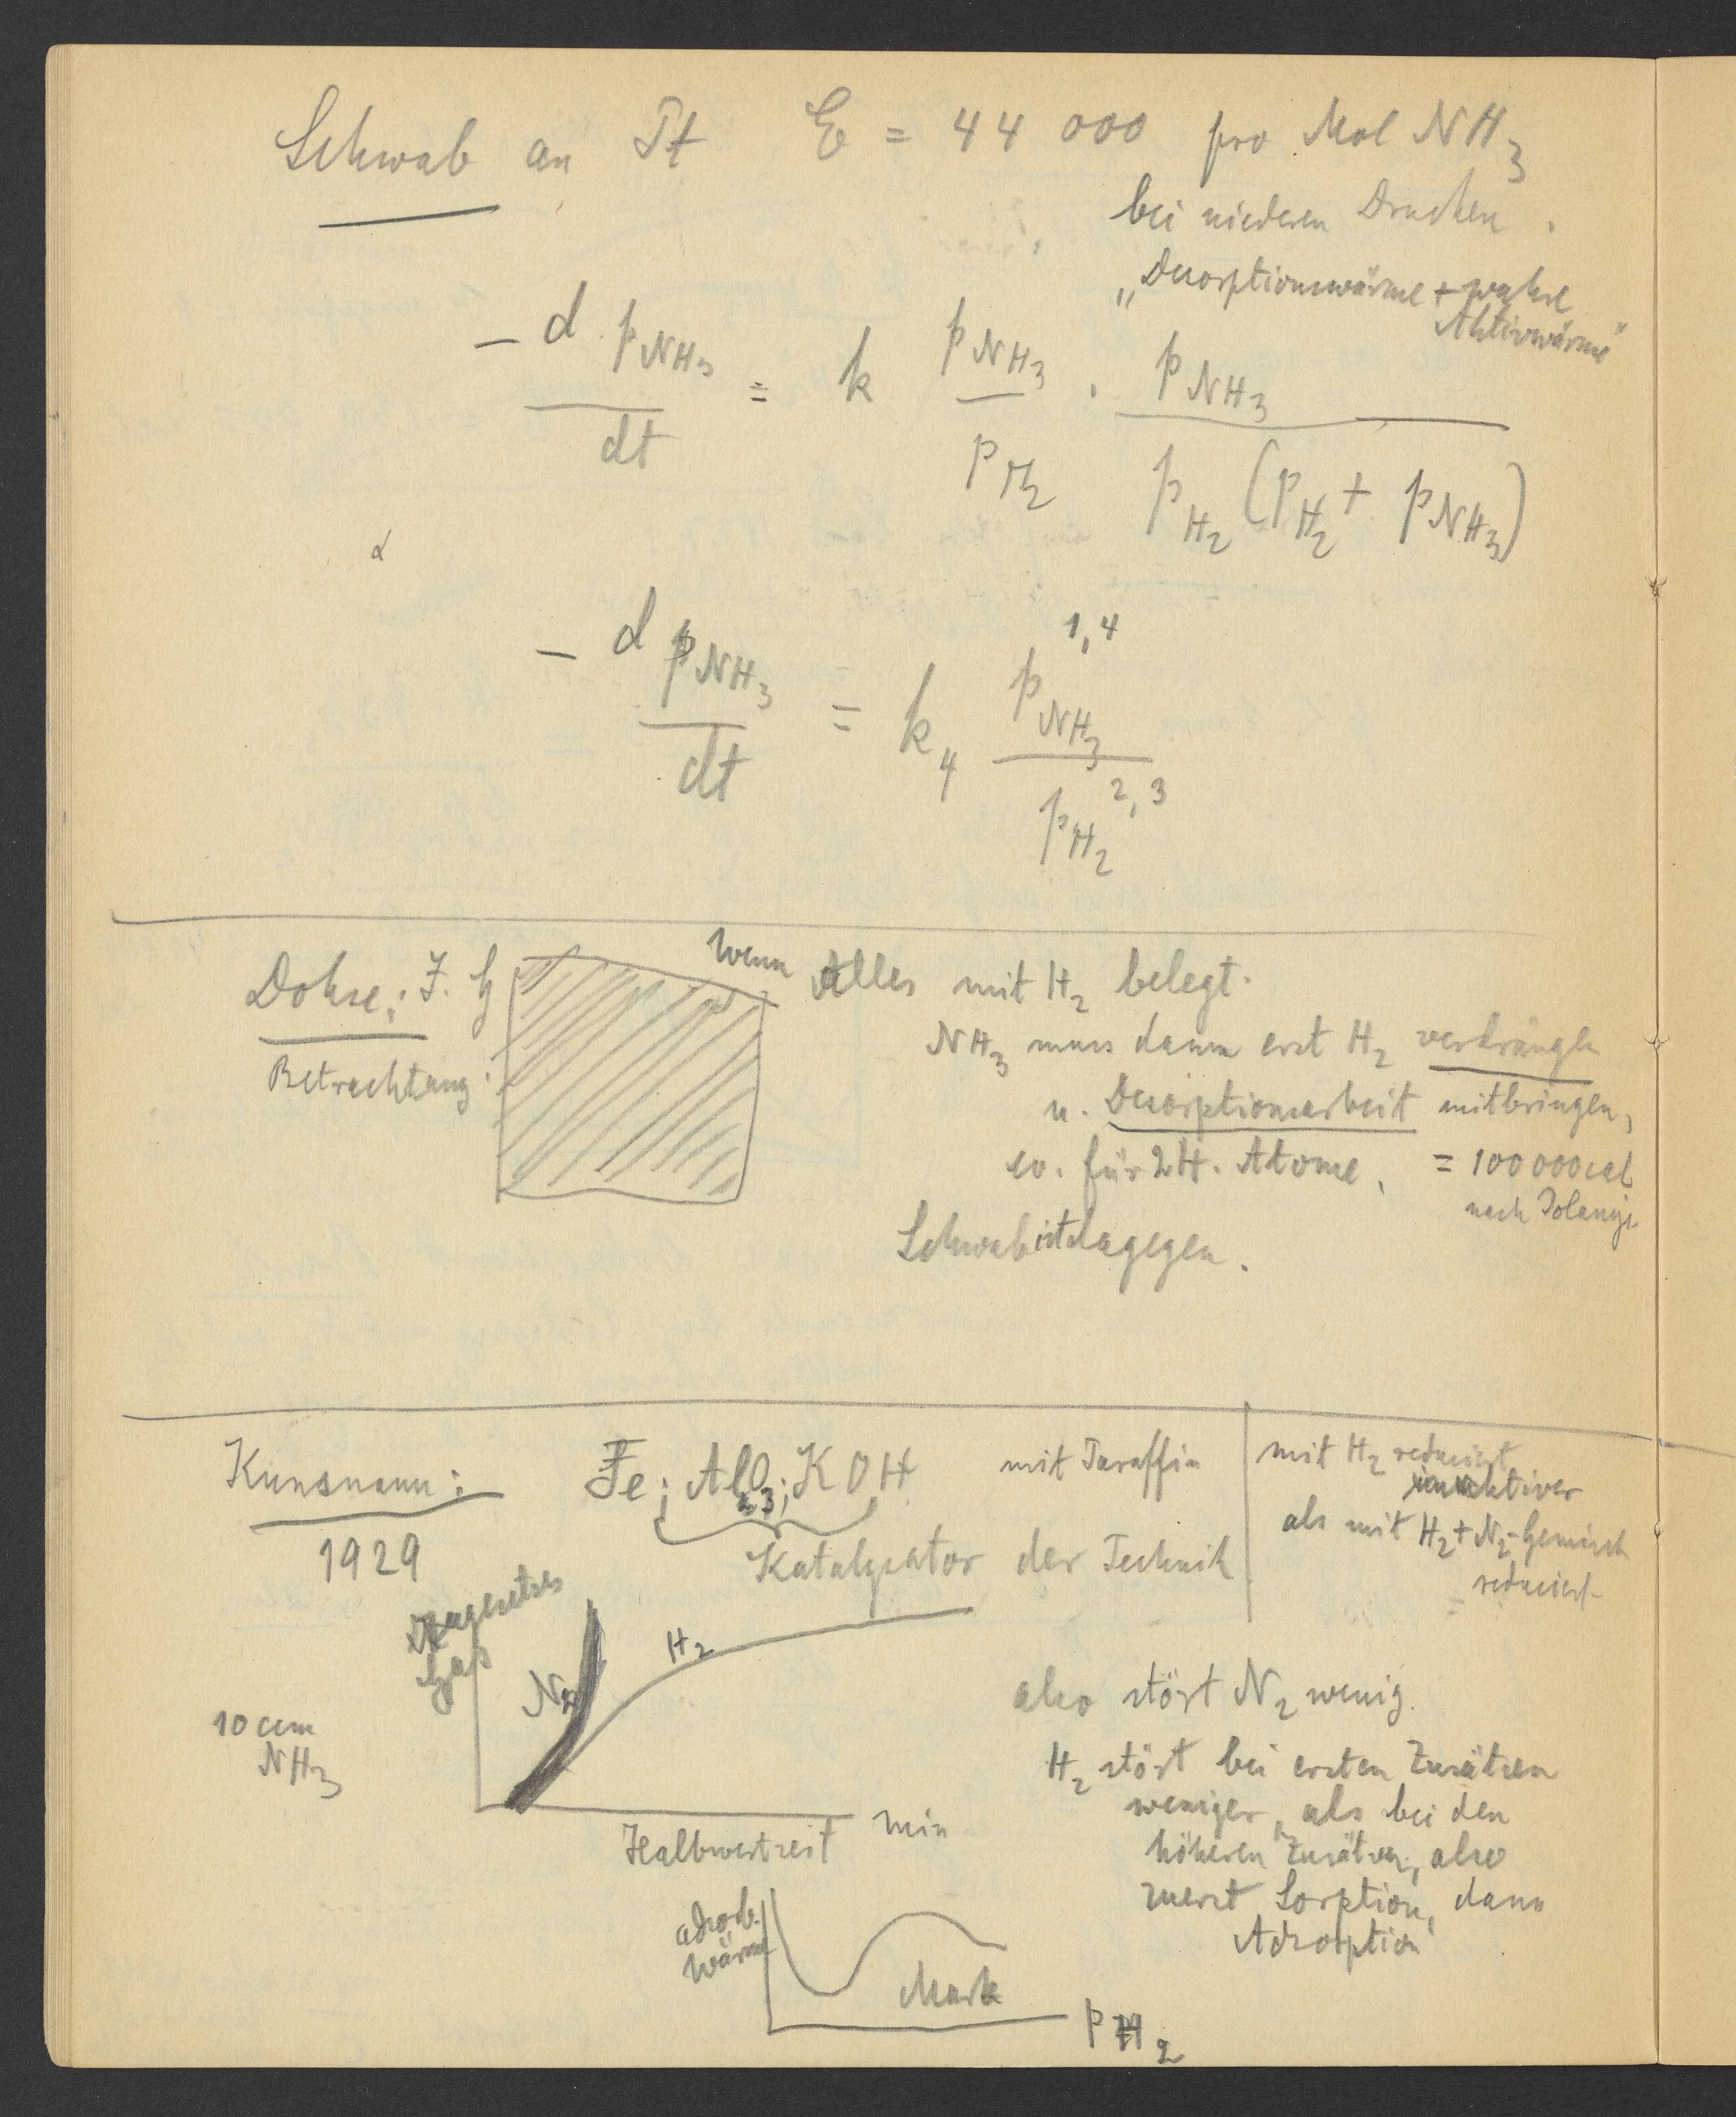 Schwab an Pt E = 44 000 pro Mol NH3
bei niederen Drucken.
„Desorptionswärme + wahre
Aktivwärme"
− d pNH3 / dt = k pNH3 / pH2 · pNH3 / pH2 (pH2 + pNH3)
α
− d pNH3 / dt = k4 pNH3^1,4 / pH2^2,3
Dohse: I. G
Betrachtung:
Wenn Alles mit H2 belegt.
NH3 muss dann erst H2 verdrängen
u. Desorptionsarbeit mitbringen,
ev. für 2 H. Atome. = 100 000 cal
nach Polanyi
Schwab ist dagegen.
Kunsmann:
1929
Fe; Al2O3; KOH mit Paraffin
Katalysator der Technik
mit H2 reduciert
inaktiver
als mit H2 + N2-Gemisch
reduciert
Zugesetztes
Gas
N2
H2
10 ccm
NH3
Halbwertzeit min
also stört N2 wenig.
H2 stört bei ersten Zusätzen
weniger, als bei den
höheren Zusätzen, also
zuerst Sorption, dann
Adsorption
adsorb.
wärme
Mark
pH2